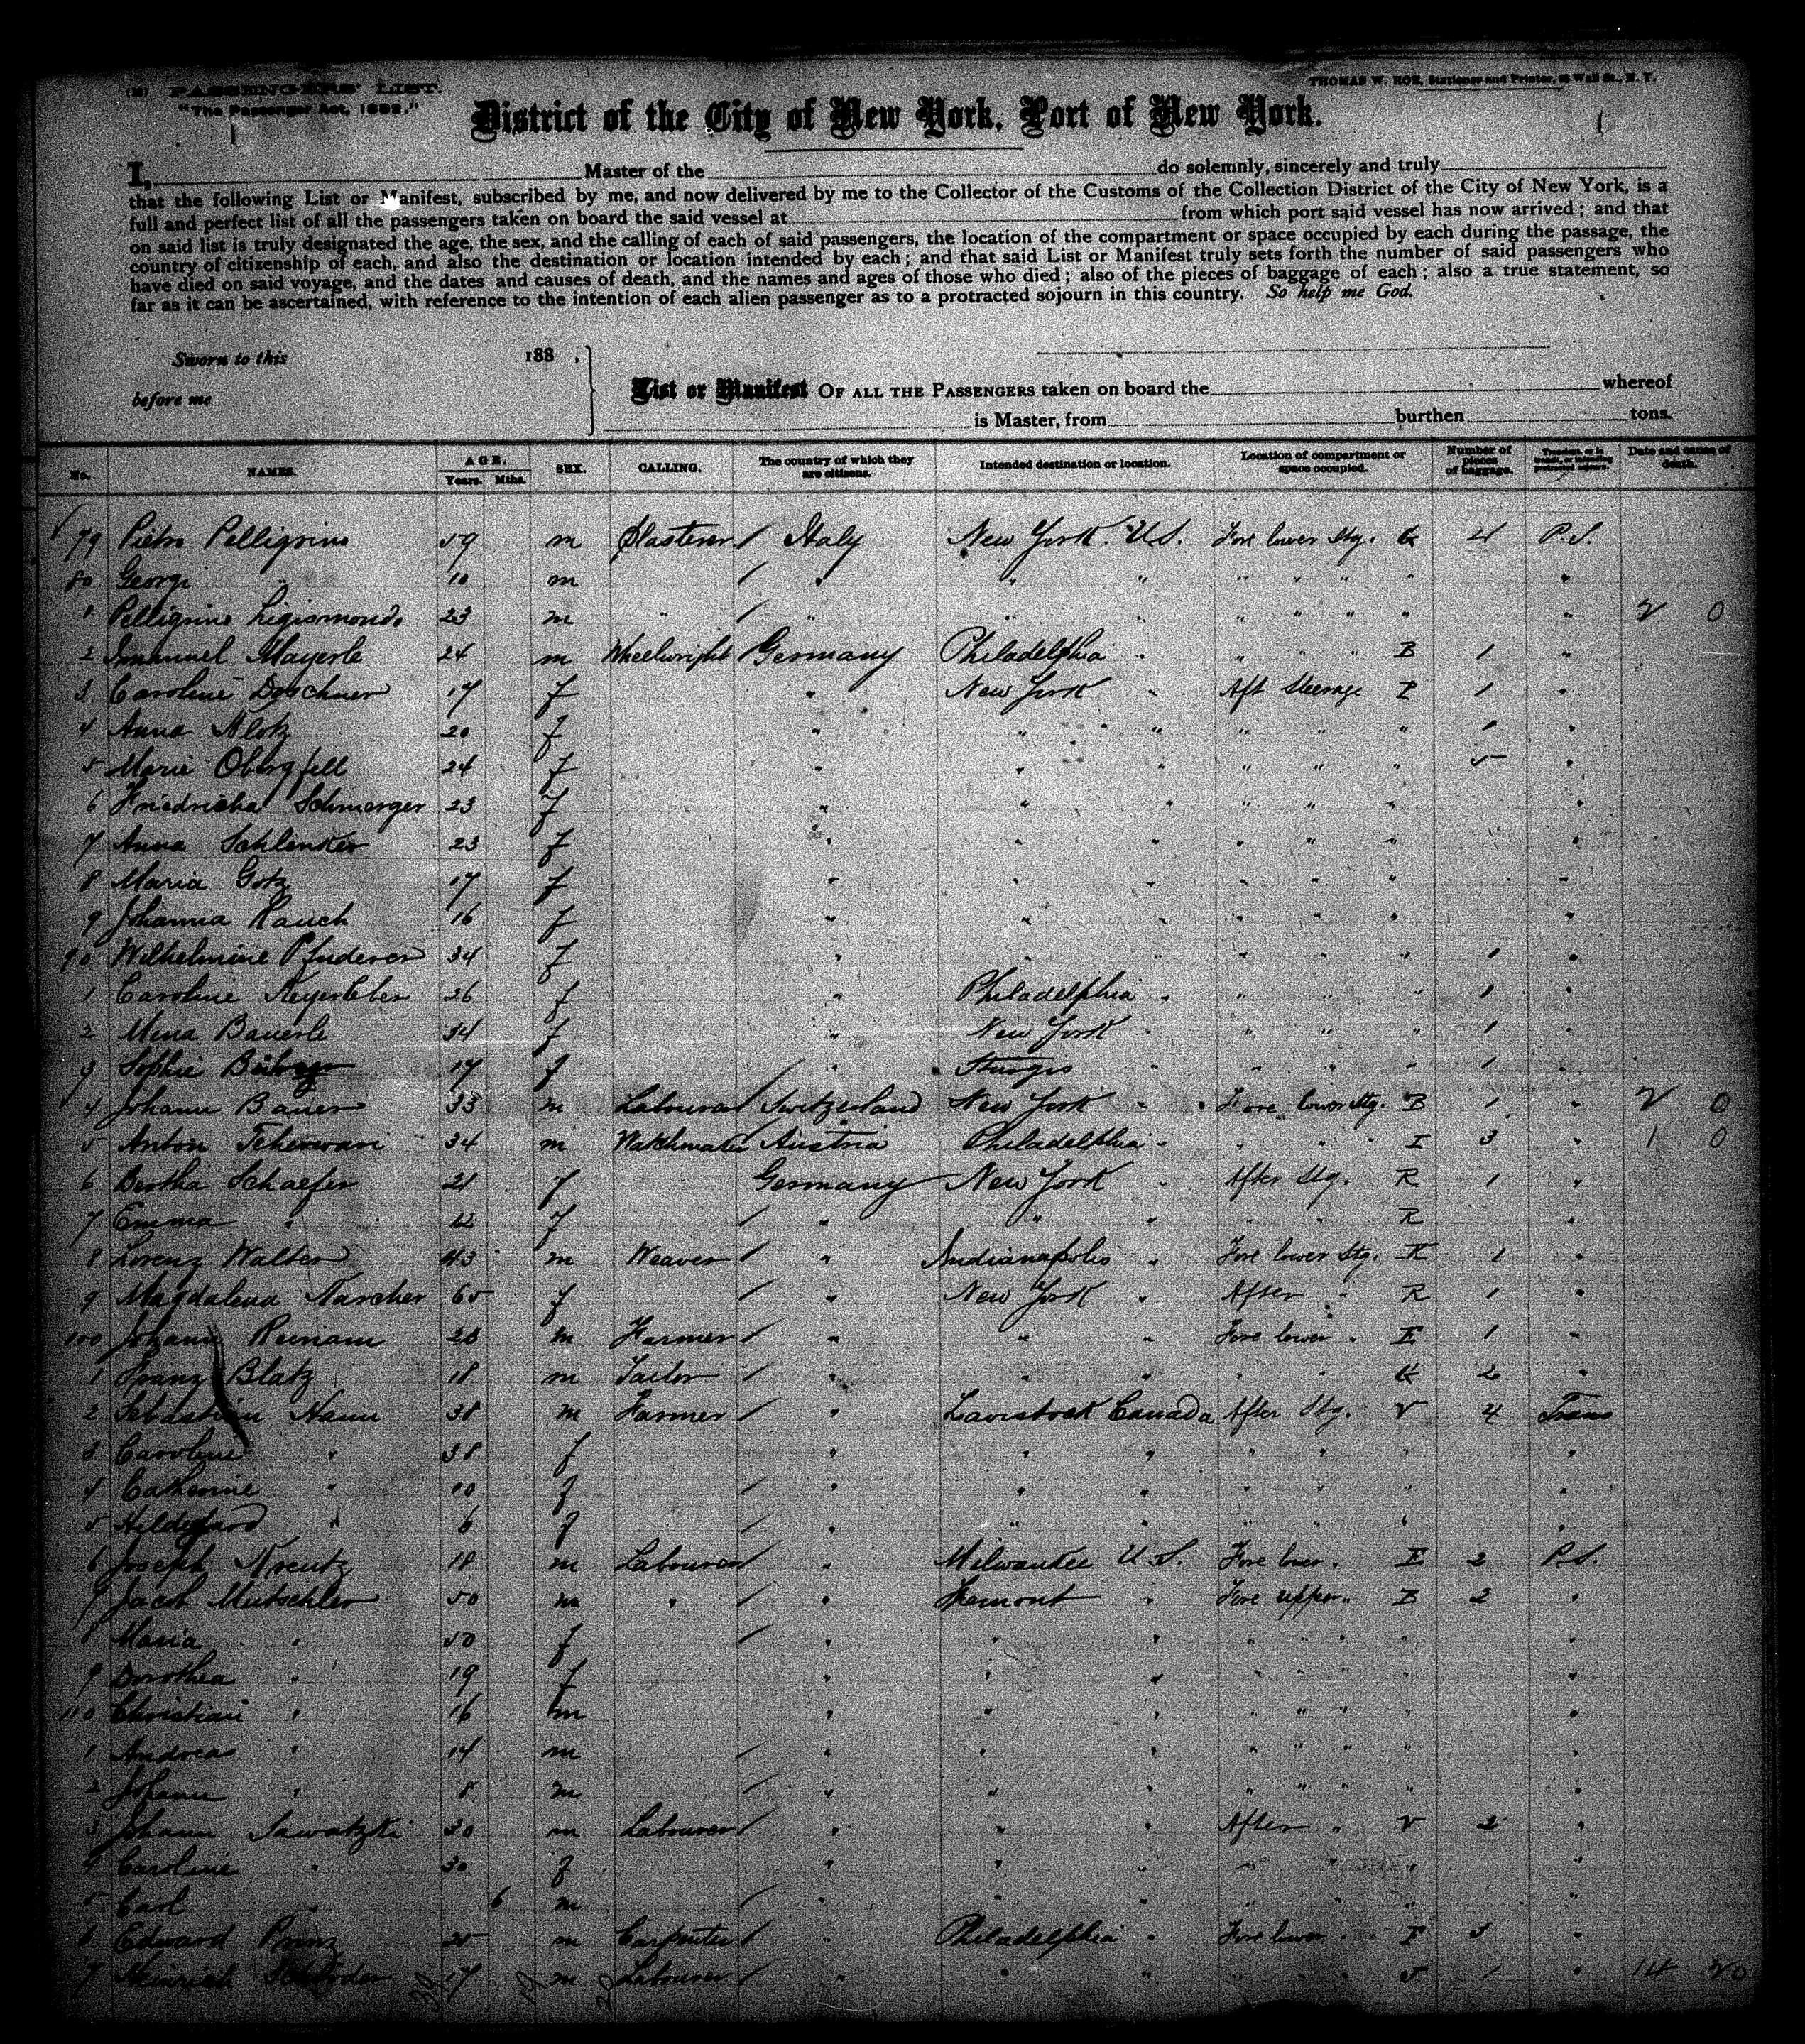 (M) PASSENGERS' LIST.
"The Passenger Act, 1882."
THOMAS W. ROE, Stationer and Printer, Wall St., N. Y.
District of the City of New York, Port of New York.
I, Master of the do solemnly, sincerely and truly
that the following List or Manifest, subscribed by me, and now delivered by me to the Collector of the Customs of the Collection District of the City of New York, is a
full and perfect list of all the passengers taken on board the said vessel at from which port said vessel has now arrived; and that
on said list is truly designated the age, the sex, and the calling of each of said passengers, the location of the compartment or space occupied by each during the passage, the
country of citizenship of each, and also the destination or location intended by each; and that said List or Manifest truly sets forth the number of said passengers who
have died on said voyage, and the dates and causes of death, and the names and ages of those who died; also of the pieces of baggage of each; also a true statement, so
far as it can be ascertained, with reference to the intention of each alien passenger as to a protracted sojourn in this country. So help me God.
Sworn to this 188 ,
before me
List or Manifest OF ALL THE PASSENGERS taken on board the whereof
is Master, from burthen tons.
No. NAMES. AGE. Years. Mths. SEX. CALLING. The country of which they are citizens. Intended destination or location. Location of compartment or space occupied. Number of pieces of baggage. Transient, or in transit, or intending protracted sojourn. Date and cause of death.
79 Pietro Pelligrino 59 m Plasterer Italy New York. U.S. Fore lower Stg. G 4 P.S.
80 Georgi " 10 m " " " " " " " "
1 Pelligrino Ligismondo 23 m " " " " " " " " " 2 0
2 Imanuel Mayerle 24 m Wheelwright Germany Philadelphia " " " " B 1 "
3 Caroline Deschner 17 f " New York " Aft Steerage 1 "
4 Anna Klotz 20 f " " " " " " 1 "
5 Marie Obergfell 24 f " " " " " " 5 "
6 Friedricka Schmerger 23 f " " " " " " "
7 Anna Schlenker 23 f " " " " " " "
8 Maria Gotz 17 f " " " " " " "
9 Johanna Rauch 16 f " " " " " " "
90 Wilhelmine Pfuderer 34 f " " " " " " 1 "
1 Caroline 26 f " Philadelphia " " " " 1 "
2 Mina Bauerle 34 f " New York " " " " 1 "
3 Sophie 17 f " Sturgis " " " " 1 "
4 Johann Bauer 33 m Labourer Switzerland New York " Fore lower Stg. B 1 " 2 0
5 Anton 34 m Watchmaker Austria Philadelphia " " " " I 3 " 1 0
6 Bertha Schaefer 21 f Germany New York " After Stg. R 1 "
7 Emma " 12 f " " " " " R "
8 Lorenz Walter 43 m Weaver " Indianapolis " Fore lower Stg. K 1 "
9 Magdalena Karcher 65 f " New York " After " R 1 "
100 Johann 28 m Farmer " " " Fore lower " E 1 "
1 Franz Blatz 18 m Tailor " " " " " G 2 "
2 Sebastian Hann 38 m Farmer " Lavistock Canada After Stg. V 4 Trans
3 Caroline " 38 f " " " " " "
4 Catherine " 10 f " " " " " " "
5 Hildegard " 6 f " " " " " " "
6 Joseph Kreutz 18 m Labourer " Milwaukee U.S. Fore lower " E 2 P.S.
7 Jacob Mutschler 50 m " " Fremont " Fore upper " B 2 "
8 Maria " 50 f " " " " " " " "
9 Dorothea " 19 f " " " " " " " "
110 Christian " 16 m " " " " " " " "
1 Andreas " 14 m " " " " " " " "
2 Johann " 8 m " " " " " " " "
3 Johann Sawatzki 30 m Labourer " " " After " V 2 "
4 Caroline " 30 f " " " " " " "
5 Carl " 6 m " " " " " " "
6 Edward Prinz 25 m Carpenter " Philadelphia " Fore lower " 3 "
7 Heinrich Schröder 17 m Labourer " " " " " 1 " 14 20